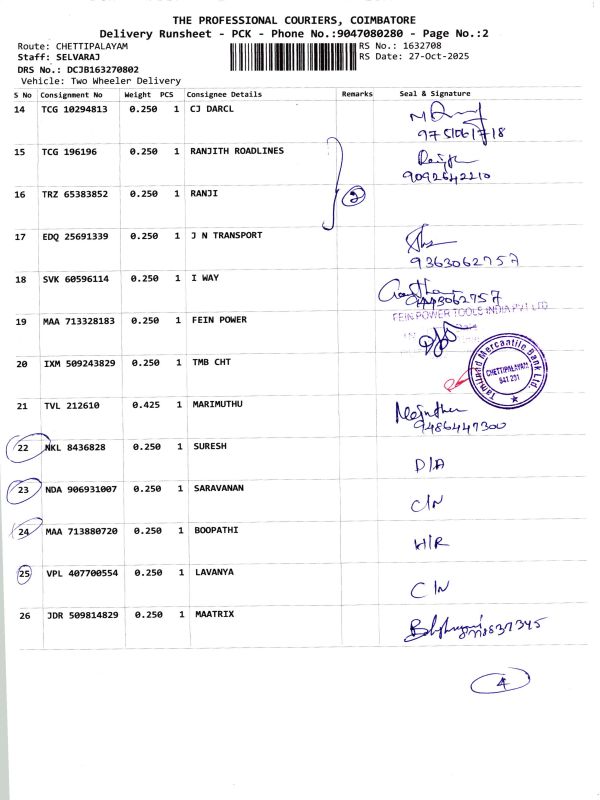 THE PROFESSIONAL COURIERS, COIMBATORE
Delivery Runsheet - PCK - Phone No.:9047080280 - Page No.:2
Route: CHETTIPALAYAM RS No.: 1632708
Staff: SELVARAJ RS Date: 27-Oct-2025
DRS No.: DCJB163270802
Vehicle: Two Wheeler Delivery
S No Consignment No Weight PCS Consignee Details Remarks Seal & Signature
14 TCG 10294813 0.250 1 CJ DARCL
9751061718
15 TCG 196196 0.250 1 RANJITH ROADLINES
9092642210
16 TRZ 65383852 0.250 1 RANJI 2
17 EDQ 25691339 0.250 1 J N TRANSPORT
9363062757
18 SVK 60596114 0.250 1 I WAY
19 MAA 713328183 0.250 1 FEIN POWER FEIN POWER TOOLS INDIA PVT LTD
20 IXM 509243829 0.250 1 TMB CHT
Tamilnad Mercantile Bank Ltd.
CHETTIPALAYAM
641 201
21 TVL 212610 0.425 1 MARIMUTHU
9486447300
22 NKL 8436828 0.250 1 SURESH D/A
23 NDA 906931007 0.250 1 SARAVANAN C/N
24 MAA 713880720 0.250 1 BOOPATHI H/R
25 VPL 407700554 0.250 1 LAVANYA C/N
26 JDR 509814829 0.250 1 MAATRIX
4